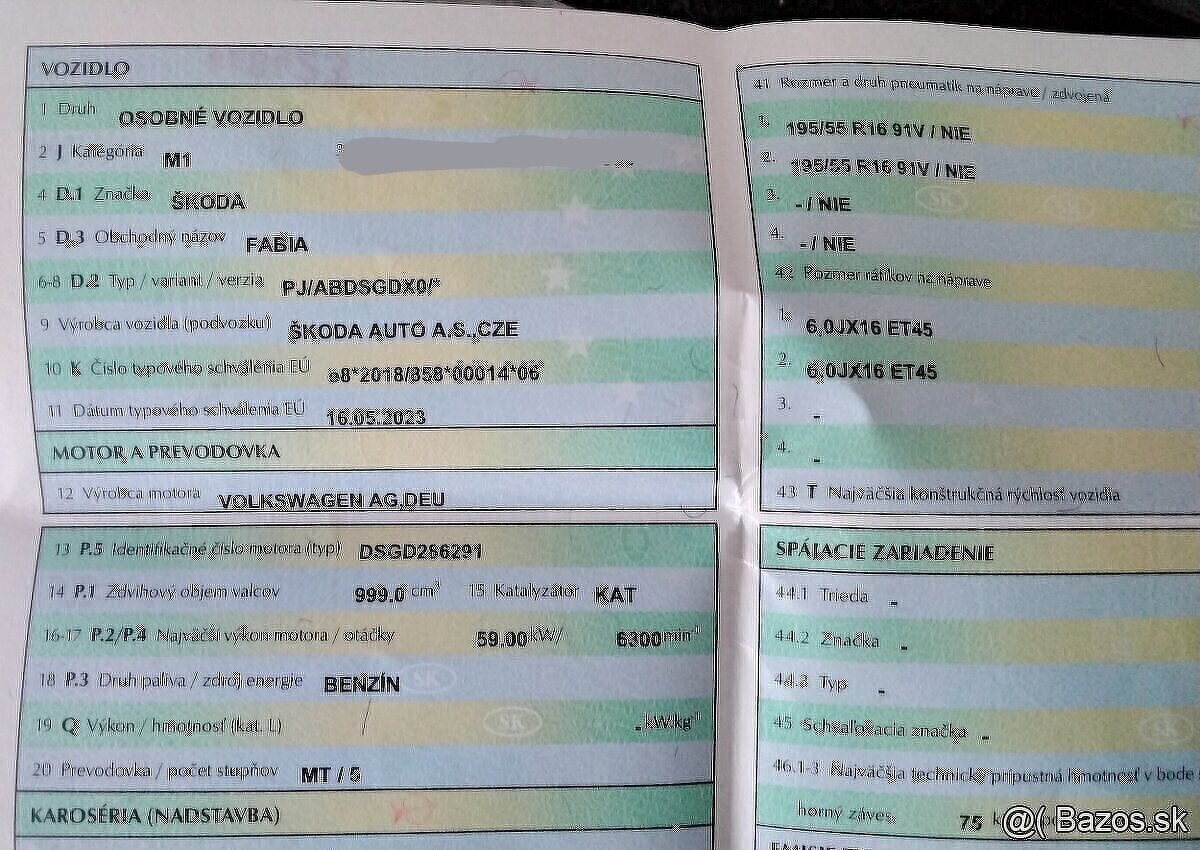 VOZIDLO
1 Druh OSOBNÉ VOZIDLO
2 J Kategória M1
4 D.1 Značka ŠKODA
5 D.3 Obchodný názov FABIA
6-8 D.2 Typ / variant / verzia PJ/ABDSGDX0/*
9 Výrobca vozidla (podvozku) ŠKODA AUTO A.S.,CZE
10 K Číslo typového schválenia EÚ e8*2018/858*00014*06
11 Dátum typového schválenia EÚ 16.05.2023
MOTOR A PREVODOVKA
12 Výrobca motora VOLKSWAGEN AG,DEU
13 P.5 Identifikačné číslo motora (typ) DSGD286291
14 P.1 Zdvihový objem valcov 999.0 cm³ 15 Katalyzátor KAT
16-17 P.2/P.4 Najväčší výkon motora / otáčky 59.00 kW/ 6300 min⁻¹
18 P.3 Druh paliva / zdroj energie BENZÍN
19 Q Výkon / hmotnosť (kat. L) - kWkg⁻¹
20 Prevodovka / počet stupňov MT / 5
KAROSÉRIA (NADSTAVBA)
41 Rozmer a druh pneumatík na náprave / zdvojená
1. 195/55 R16 91V / NIE
2. 195/55 R16 91V / NIE
3. - / NIE
4. - / NIE
42 Rozmer ráfikov na náprave
1. 6,0JX16 ET45
2. 6,0JX16 ET45
3. -
4. -
43 T Najväčšia konštrukčná rýchlosť vozidla
SPÁJACIE ZARIADENIE
44.1 Trieda -
44.2 Značka -
44.3 Typ -
45 Schvaľovacia značka -
46.1-3 Najväčšia technicky prípustná hmotnosť v bode
horný záves: 75
@( Bazos.sk